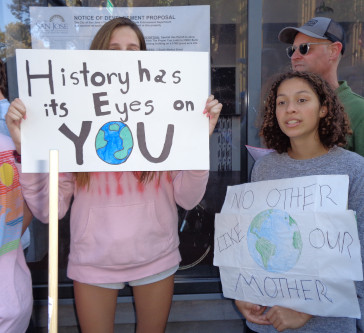 NOTICE OF DEVELOPMENT PROPOSAL
SAN JOSE
History has
its Eyes on
YOU
NO OTHER
LIKE OUR
MOTHER